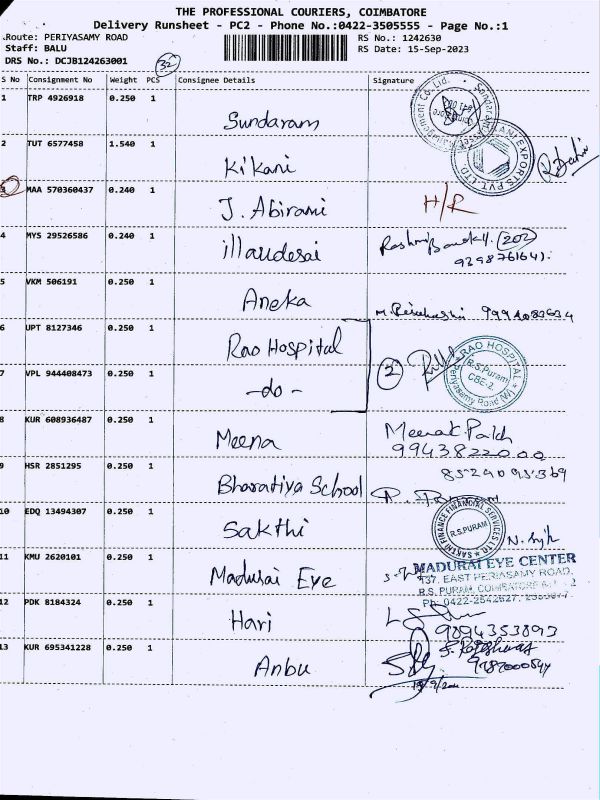 THE PROFESSIONAL COURIERS, COIMBATORE
Delivery Runsheet - PC2 - Phone No.:0422-3505555 - Page No.:1
Route: PERIYASAMY ROAD
RS No.: 1242630
Staff: BALU
RS Date: 15-Sep-2023
DRS No.: DCJB124263001
32
S No Consignment No Weight PCS Consignee Details Signature
1 TRP 4926918 0.250 1
Sundaram
2 TUT 6577458 1.540 1
Kikani
EXPORTS PVT. LTD.
3 MAA 570360437 0.240 1
J. Abirami H/R
4 MYS 29526586 0.240 1
illaudesai (202)
5 VKM 506191 0.250 1
Aneka
6 UPT 8127346 0.250 1
Rao Hospital
RAO HOSPITAL
R.S.Puram
CBE-2.
Periyasamy Road (W)
7 VPL 944408473 0.250 1
-do- 2
8 KUR 608936487 0.250 1
Meena
9943822000
9 HSR 2851295 0.250 1
Bharatiya School
10 EDQ 13494307 0.250 1
Sakthi
SAKTHI FINANCE FINANCIAL SERVICES LTD
R.S.PURAM
11 KMU 2620101 0.250 1
Madurai Eye
MADURAI EYE CENTER
EAST PERIASAMY ROAD,
R.S. PURAM, COIMBATORE
12 PDK 8184324 0.250 1
Hari
9894353893
13 KUR 695341228 0.250 1
Anbu